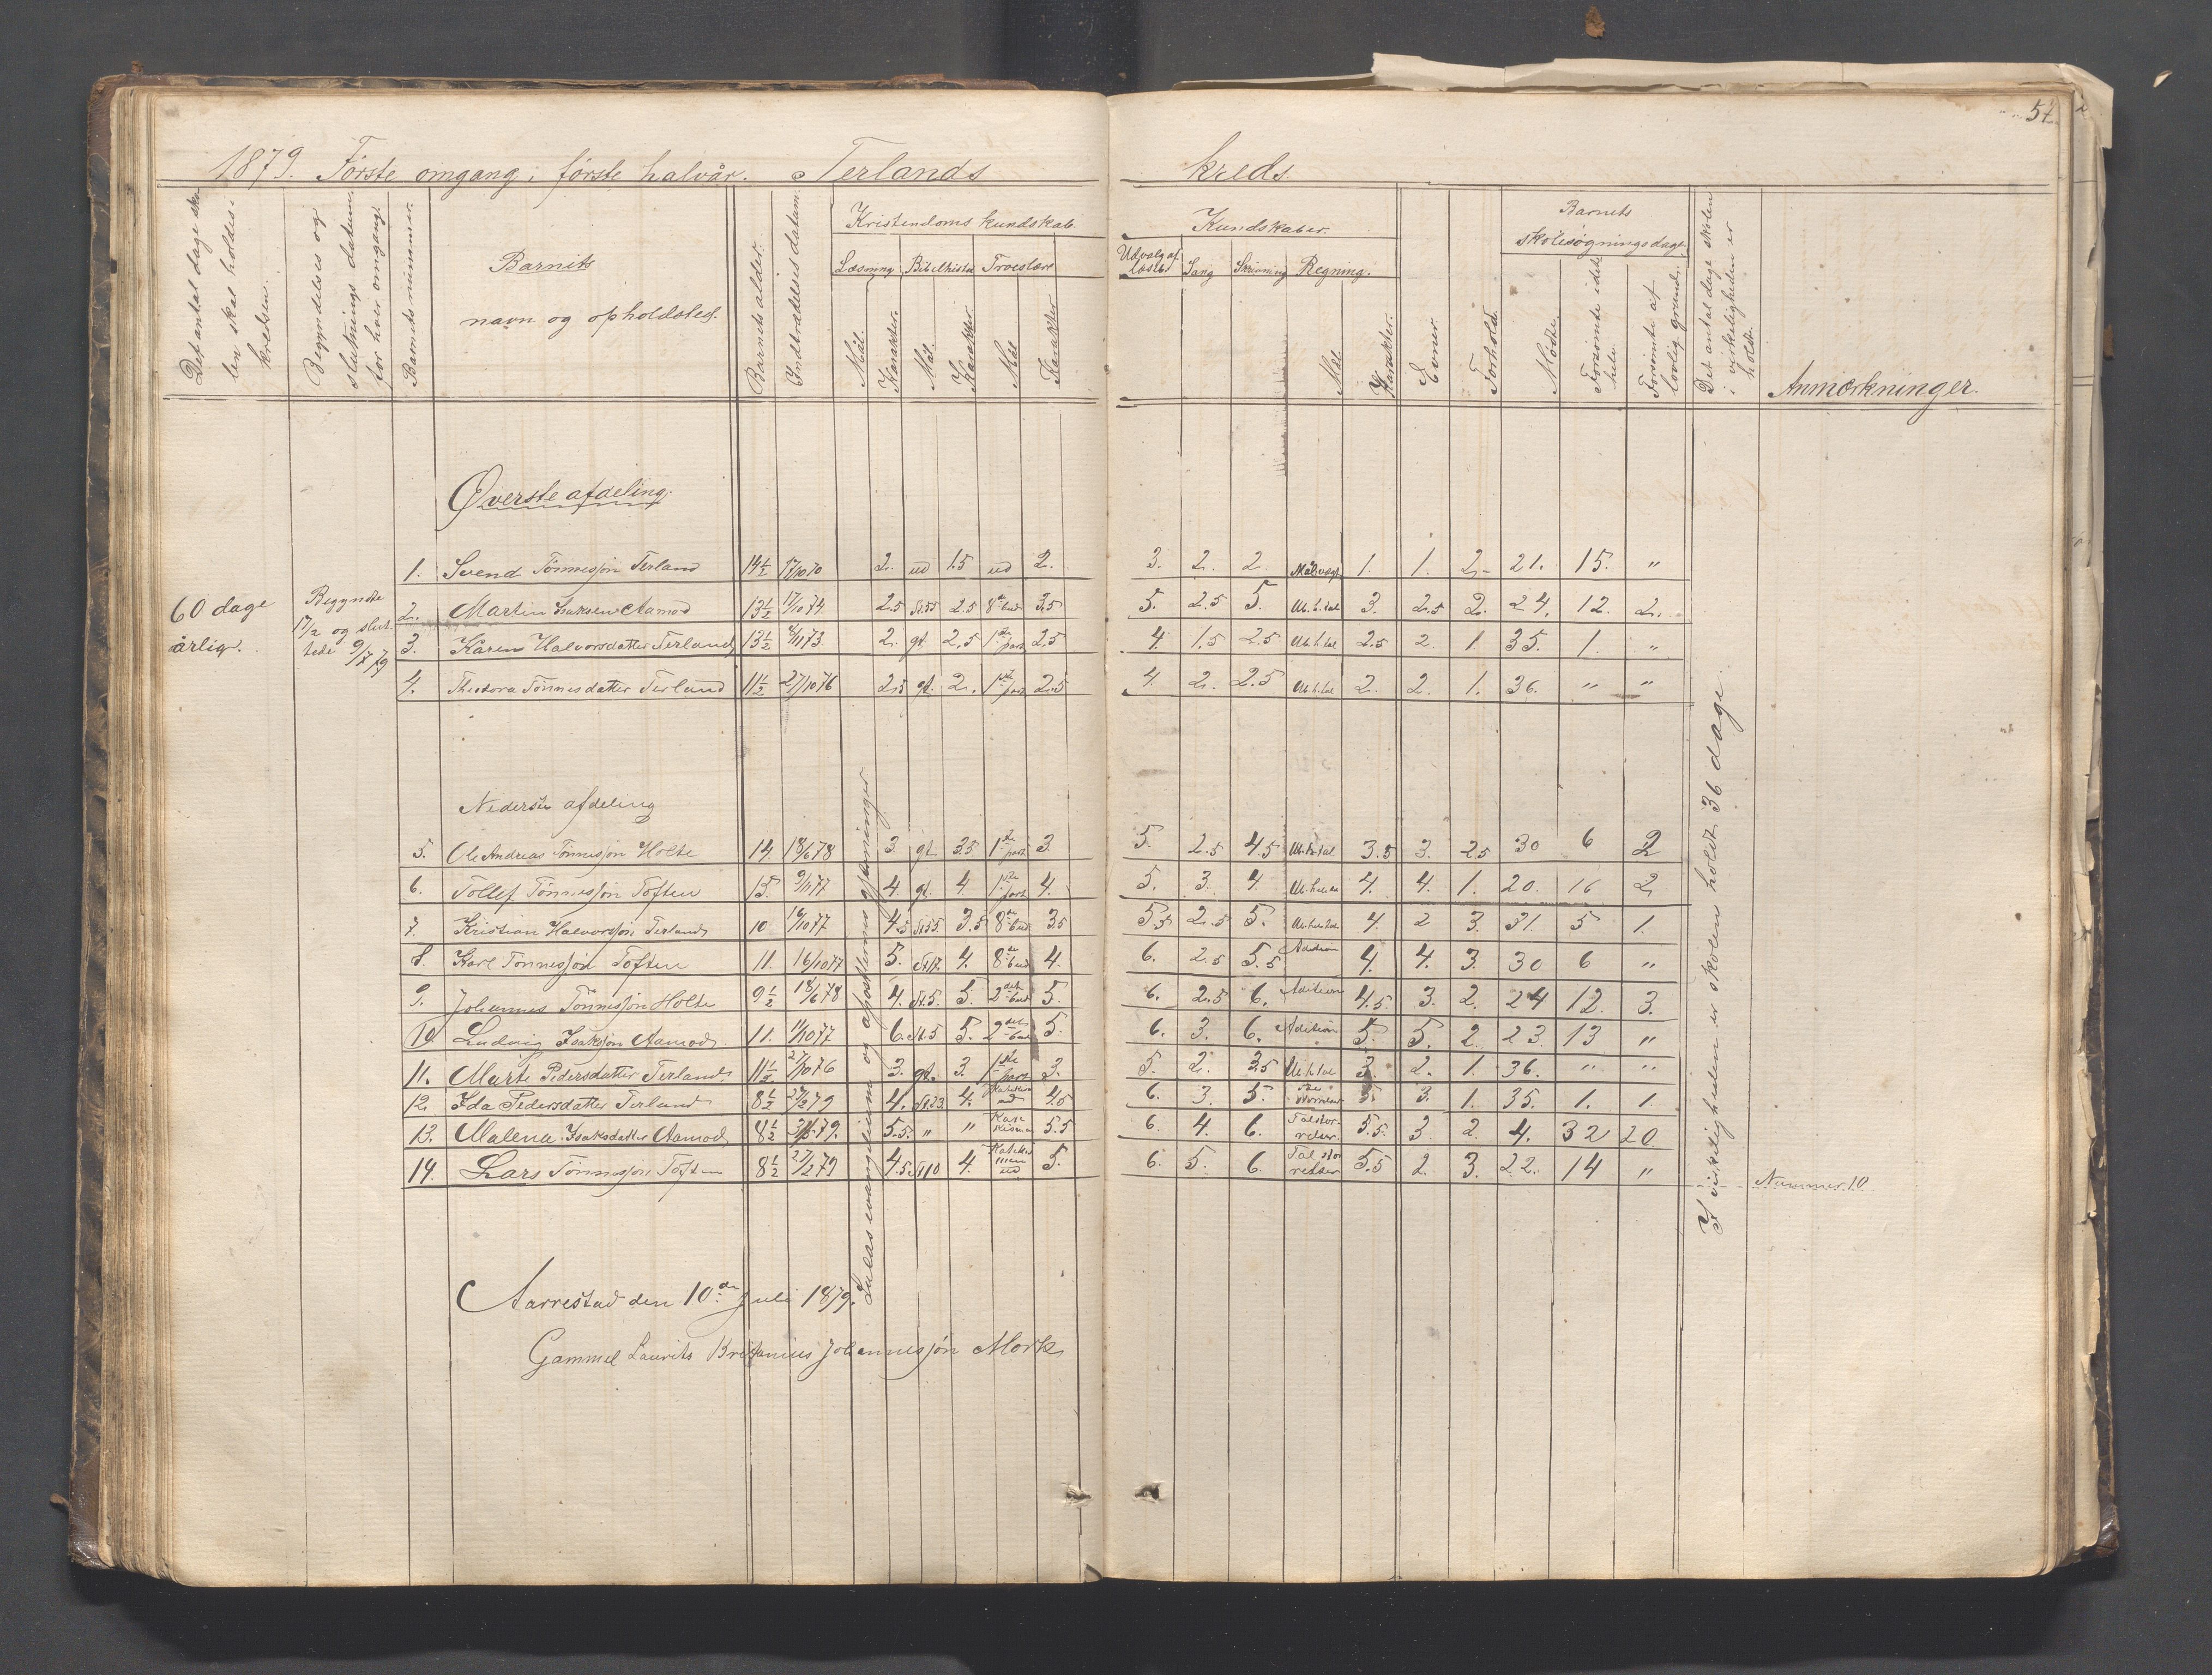 57
1879. Første omgang, første halvår. Terlands kreds.
Det antal dage skolen skal holdes i kredsen.
Begyndelses og slutnings datum for hver omgang.
Barnets nummer.
Barnets navn og opholdsted.
Barnets alder.
Indtrædelses datum.
Kristendoms kundskab.
Læsning Bibelhistorie Troeslære
Mål. Karakter. Mål. Karakter Mål Karakter
Kundskaber.
Udvalg af læseb. Sang Skrivning Regning.
Mål Karakter.
Evner.
Forhold.
Barnets skolesøgningsdage.
Mødte.
Forsømte i det hele.
Forsømte af lovlig grund.
Det antal dage skolen i virkeligheden er holdt.
Anmærkninger.
Øverste afdeling.
60 dage årlig.
Begyndte 17/2 og sluttede 9/7 79
1. Svend Tønnesjøn Terland 14½ 17/10 70 2. ud 1.5 ud 2. 3. 2. 2 1. 1. 2. 21. 15. "
2. Martin Isaksen Aamod 13½ 17/10 74 2.5 St.55 2.5 8de bud 3.5 5. 2.5 5. Ub.h.tal 3. 2.5 2. 24. 12. 2.
3. Karen Halvorsdatter Terland 13½ 4/11 73 2. gt. 2.5 1ste part 2.5 4. 1.5 2.5 Ub.h.tal 2.5 2. 1. 35. 1. "
4. Theodora Tønnesdatter Terland 11½ 27/10 76 2.5 gt. 2. 1ste part 2.5 4 2. 2.5 Ub.h.tal 2. 2. 1. 36. " "
Nederste afdeling
5. Ole Andreas Tønnesjøn Holte 14. 18/6 78 3. gt. 3.5 1ste part 3 5. 2.5 4.5 Ub.h.tal 3.5 3. 2.5 30 6 2
6. Tollef Tønnesjøn Toften 13. 9/11 77 4. gt. 4. 1ste part 4. 5. 3. 4. 4. 4. 1. 20. 16 2
7. Kristian Halvorsjøn Terland 10 16/10 77 4.5 St.55 3.5 8de bud 3.5 5.5 2.5 5. Ub.h.tal 4. 2 3. 31. 5 1.
8. Karl Tønnesjøn Toften 11. 16/10 77 5. St.17. 4. 8de bud 4. 6. 2.5 5.5 Adition 4. 4. 3. 30 6 "
9. Johannes Tønnesjøn Holte 9½ 18/6 78 4. St.5. 5. 2det bud 5. 6. 2.5 6. Adition 4.5. 3. 2. 24 12. 3.
10 Ludvig Isaksjøn Aamod. 11. 11/10 77 6. St.5 5. 2det bud 5. 6. 3. 6. Adition 5. 5. 2. 23. 13 "
11. Marte Pedersdatter Terland. 11½ 27/10 76 3. gt. 3. 1ste part 3. 5. 2. 3.5 Ub.h.tal 3. 2. 1. 36. " "
12. Ida Pedersdatter Terland 8½ 27/2 79 4. St.23. 4. ud 4.5 6. 3. 5. 5. 3. 1. 35. 1. 1.
13. Malena Isaksdatter Aamod 8½ 3/5 79. 5.5. " " 5.5 6. 4. 6. Talstørrelser. 5.5. 3. 2. 4. 32 20.
14. Lars Tønnesjøn Toften 8½ 27/2 79 4.5 St.10 4. ud 5. 6. 5. 6. Talstørrelser 5.5 2. 3. 22. 14 "
Nummer 10
Lukas evangelium og apostlernes gjerninger
I virkeligheden er skolen holdt 36 dage.
Aarrestad den 10de Juli 1879.
Gammel Laurits Johannesjøn Mork